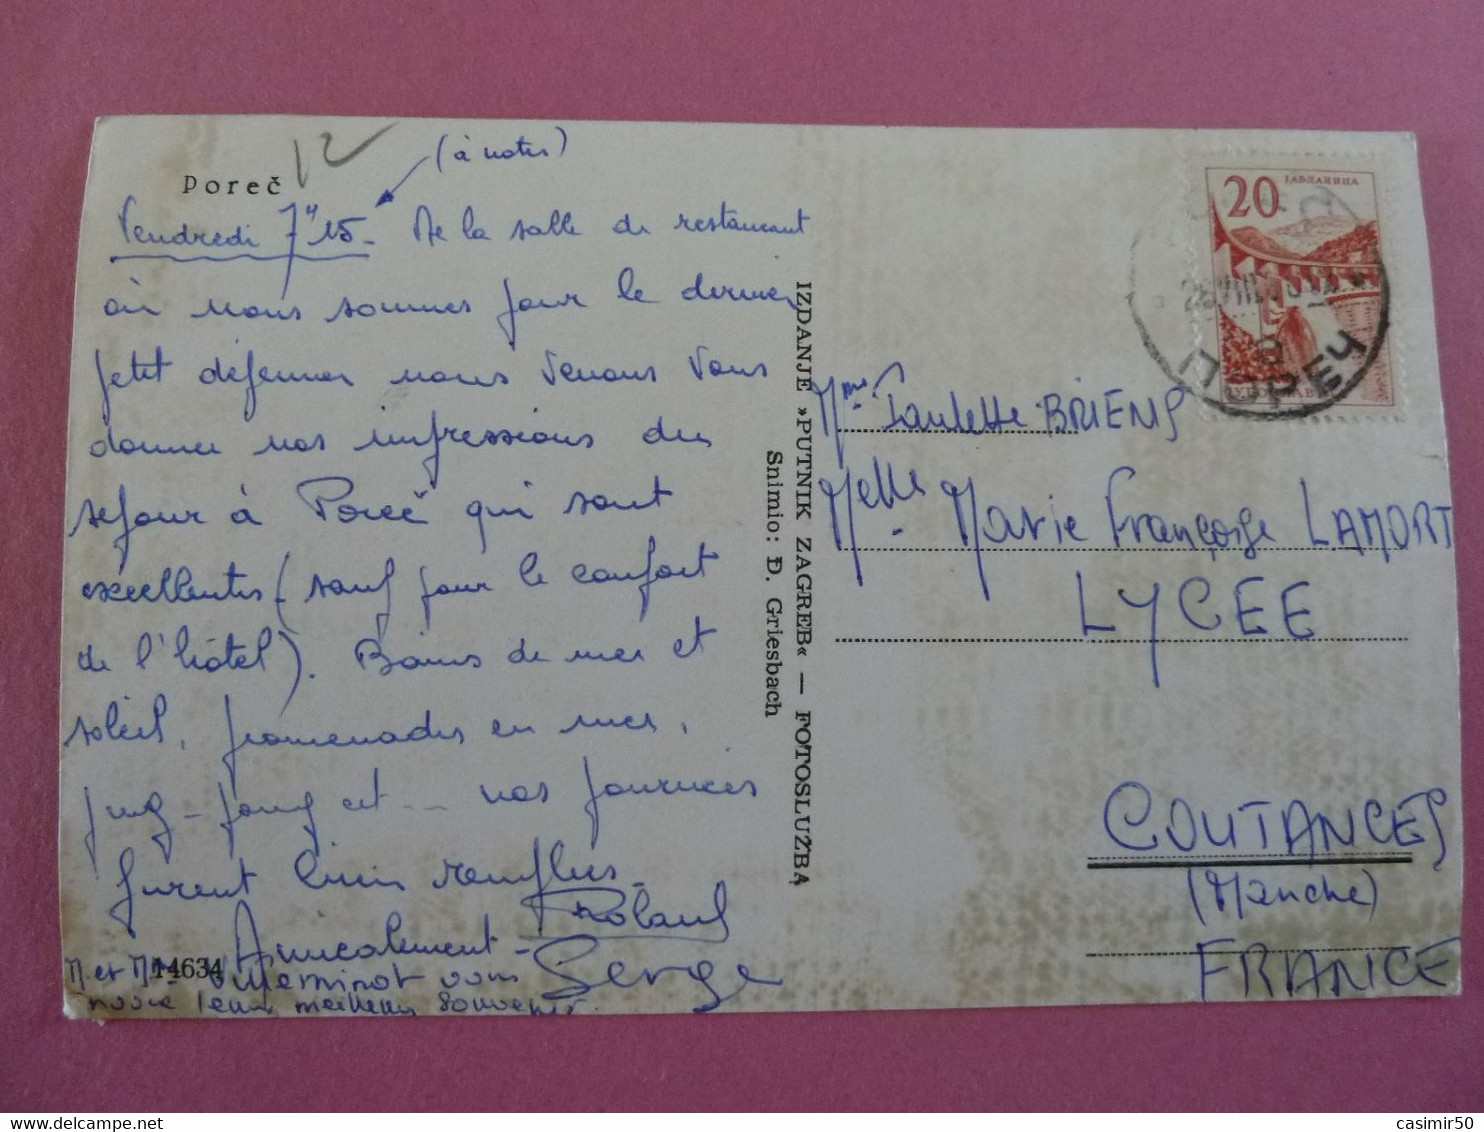 Poreč
12
(à noter)
Vendredi 7h15 - De la salle de restaurant
où nous sommes pour le dernier
petit déjeuner nous venons vous
donner nos impressions du
séjour à Poreč qui sont
excellentes (sauf pour le confort
de l'hôtel). Bains de mer et
soleil, promenades en mer,
ping-pong et... nos journées
furent bien remplies.
Amicalement - Roland
Serge
M. et Mme Vuleminot vous
envoie leurs meilleurs souvenirs
14634
IZDANJE »PUTNIK ZAGREB« — FOTOSLUŽBA
Snimio: Đ. Griesbach
20
ЈАБЛАНИЦА
ПОРЕЧ
Mme Paulette BRIENS
Melle Marie Françoise LAMORT
LYCEE
COUTANCES
(Manche)
FRANCE
casimir50